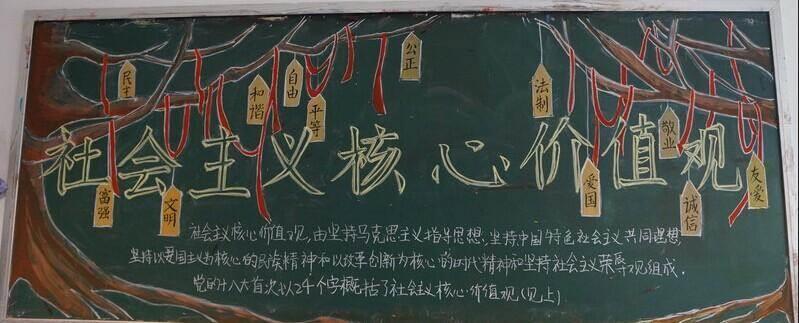 民主
和谐
自由
平等
公正
法制
敬业
社会主义核心价值观
富强
文明
爱国
诚信
友爱
社会主义核心价值观,由坚持马克思主义指导思想,坚持中国特色社会主义共同理想,
坚持以爱国主义为核心的民族精神和以改革创新为核心的时代精神和坚持社会主义荣辱观组成.
党的十八大首次以24个字概括了社会主义核心价值观(见上)